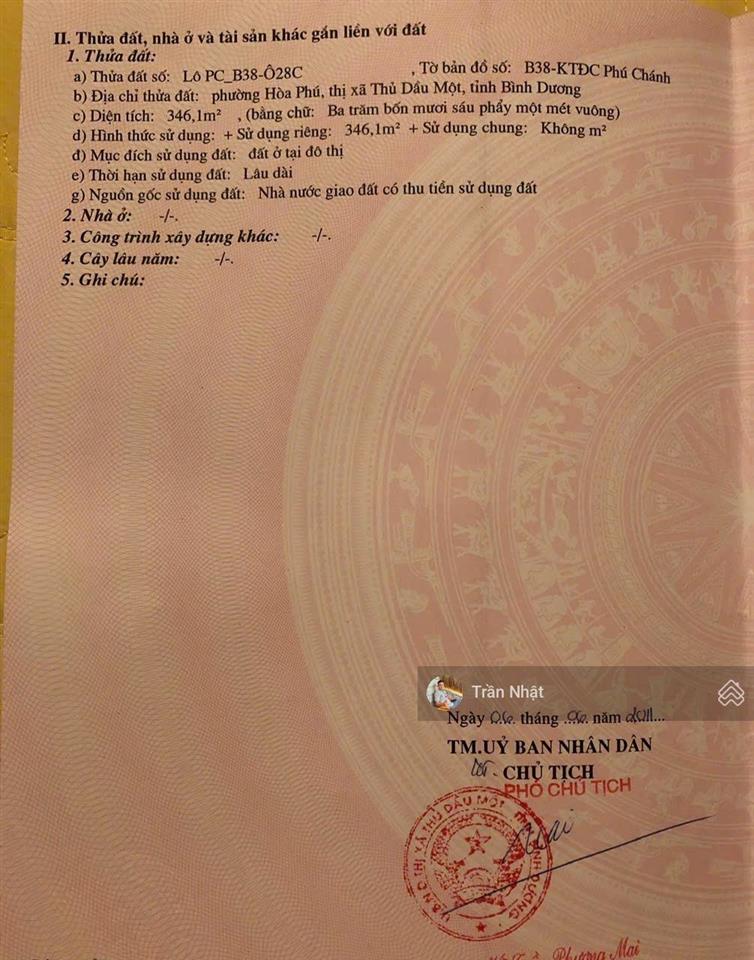 II. Thửa đất, nhà ở và tài sản khác gắn liền với đất
1. Thửa đất:
a) Thửa đất số: Lô PC_B38-Ô28C , Tờ bản đồ số: B38-KTĐC Phú Chánh
b) Địa chỉ thửa đất: phường Hòa Phú, thị xã Thủ Dầu Một, tỉnh Bình Dương
c) Diện tích: 346,1m² , (bằng chữ: Ba trăm bốn mươi sáu phẩy một mét vuông)
d) Hình thức sử dụng: + Sử dụng riêng: 346,1m² + Sử dụng chung: Không m²
đ) Mục đích sử dụng đất: đất ở tại đô thị
e) Thời hạn sử dụng đất: Lâu dài
g) Nguồn gốc sử dụng đất: Nhà nước giao đất có thu tiền sử dụng đất
2. Nhà ở: -/-.
3. Công trình xây dựng khác: -/-.
4. Cây lâu năm: -/-.
5. Ghi chú:
Trần Nhật
Ngày 06 tháng 06 năm 2011...
TM.UỶ BAN NHÂN DÂN
CHỦ TỊCH
PHÓ CHỦ TỊCH
U.B.N.D THỊ XÃ THỦ DẦU MỘT T. BÌNH DƯƠNG
Phương Mai